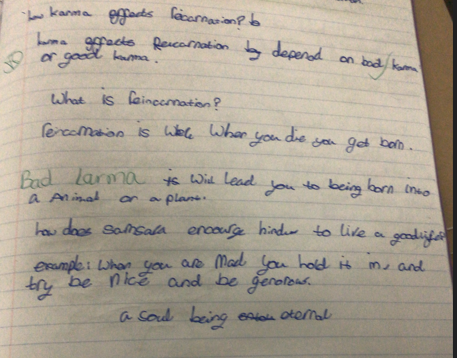 how karma effects reicarnation? b
karma effects Reucarnation by depend on bad/karma
or good karma.
What is reincarnation?
reincarnation is When you die you get born.
Bad karma is Will lead you to being born into
a Animal or a plant.
how does samsara encourge hindus to live a good life?
example: When you are Mad you hold it in, and
try be nice and be generous.
a soul being eternal